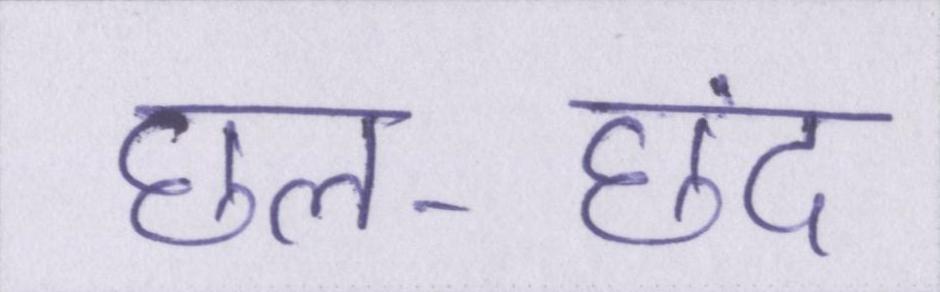 छल- छंद